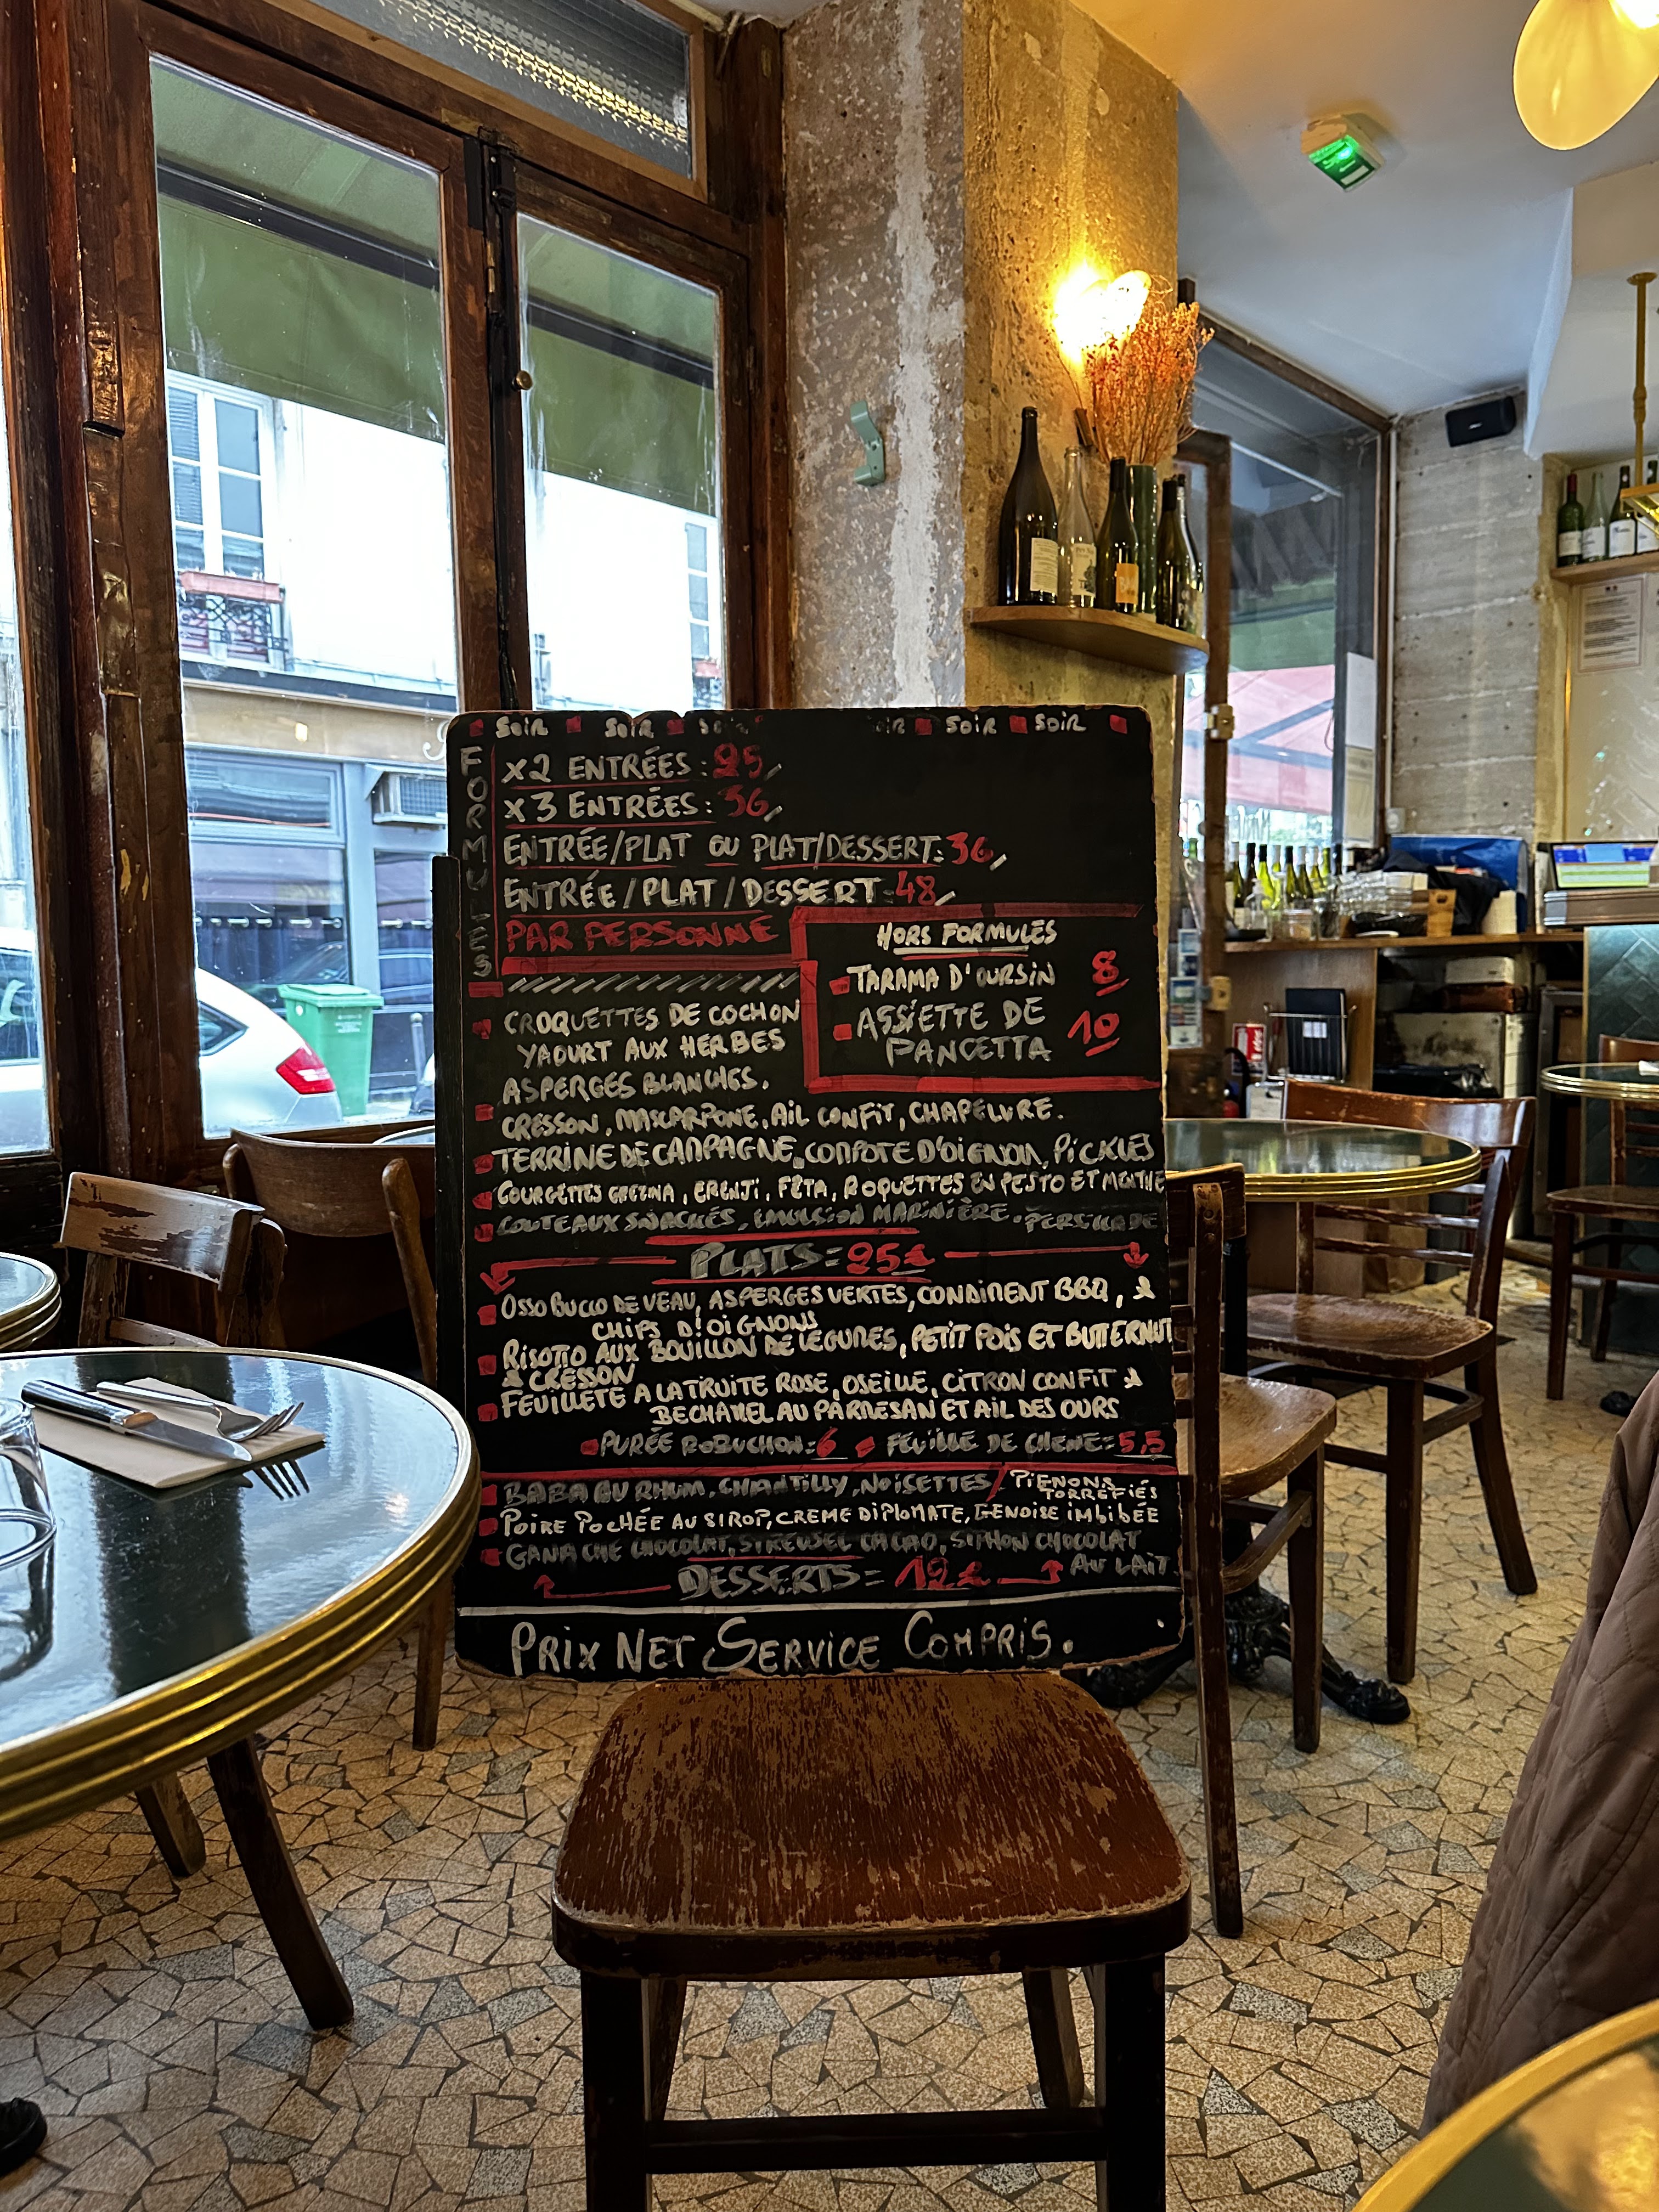 SOIR SOIR SOIR SOIR SOIR
FORMULES
x2 ENTRÉES : 25,
x3 ENTRÉES : 36,
ENTRÉE/PLAT OU PLAT/DESSERT: 36,
ENTRÉE/PLAT/DESSERT: 48,
PAR PERSONNE
HORS FORMULES
TARAMA D'OURSIN 8
ASSIETTE DE
PANCETTA 10
CROQUETTES DE COCHON
YAOURT AUX HERBES
ASPERGES BLANCHES.
CRESSON, MASCARPONE, AIL CONFIT, CHAPELURE.
TERRINE DE CAMPAGNE. COMPOTE D'OIGNON, PICKLES
COURGETTES, FETA, ROQUETTES EN PESTO ET MENTHE
COUTEAUX SNACKÉS, EMULSION MARINIÈRE. PERSILLADE
PLATS = 25€
OSSO BUCCO DE VEAU, ASPERGES VERTES, CONDIMENT BBQ, &
CHIPS D'OIGNONS
RISOTTO AUX BOUILLON DE LEGUMES, PETIT POIS ET BUTTERNUT
& CRESSON
FEUILLETÉ A LA TRUITE ROSE, OSEILLE, CITRON CONFIT &
BECHAMEL AU PARMESAN ET AIL DES OURS
PURÉE ROBUCHON: 6 FEUILLE DE CHÊNE: 5,5
BABA AU RHUM, CHANTILLY, NOISETTES/PIENONS
TORREFIÉS
POIRE POCHÉE AU SIROP, CREME DIPLOMATE, GENOISE IMBIBÉE
GANACHE CHOCOLAT, STREUSEL CACAO, SIPHON CHOCOLAT
AU LAIT
DESSERTS = 12€
PRIX NET SERVICE COMPRIS.